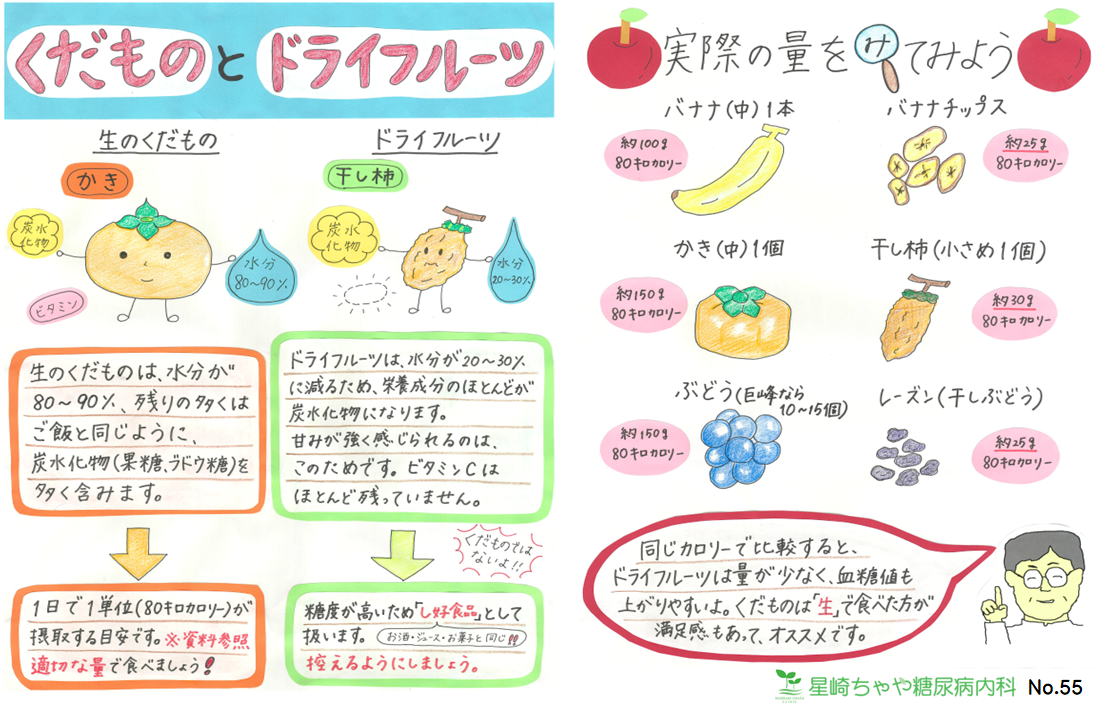 くだものとドライフルーツ
生のくだもの
かき
炭水
化物
ビタミン
水分
80～90%
ドライフルーツ
干し柿
炭水
化物
水分
20～30%
生のくだものは、水分が
80～90%、残りの多くは
ご飯と同じように、
炭水化物(果糖、ブドウ糖)を
多く含みます。
ドライフルーツは、水分が20～30%
に減るため、栄養成分のほとんどが
炭水化物になります。
甘みが強く感じられるのは、
このためです。ビタミンCは
ほとんど残っていません。
1日で1単位(80キロカロリー)が
摂取する目安です。※資料参照
適切な量で食べましょう!
くだものでは
ないよ!!
糖度が高いため「し好食品」として
扱います。
お酒・ジュース・お菓子と同じ!!
控えるようにしましょう。
実際の量をみてみよう
バナナ(中)1本
約100g
80キロカロリー
バナナチップス
約25g
80キロカロリー
かき(中)1個
約150g
80キロカロリー
干し柿(小さめ1個)
約30g
80キロカロリー
ぶどう(巨峰なら
10～15個)
約150g
80キロカロリー
レーズン(干しぶどう)
約25g
80キロカロリー
同じカロリーで比較すると、
ドライフルーツは量が少なく、血糖値も
上がりやすいよ。くだものは「生」で食べた方が
満足感もあって、オススメです。
星崎ちゃや糖尿病内科 No.55